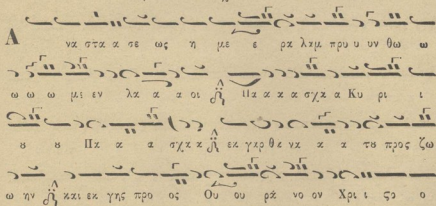 Α να στα α σε ως η με ε ρα λαμ πρυ υ υν θω ω
ω ω ω μεν εν λα α α οι Πα α α α σχα α Κυ ρι ι
ου ου Πα α α α σχα α εκ γαρ θα να α α του προς ζω
ω ην και εκ γης προ ος Ου ου ρά νο ον Χρι ι ϛο ο